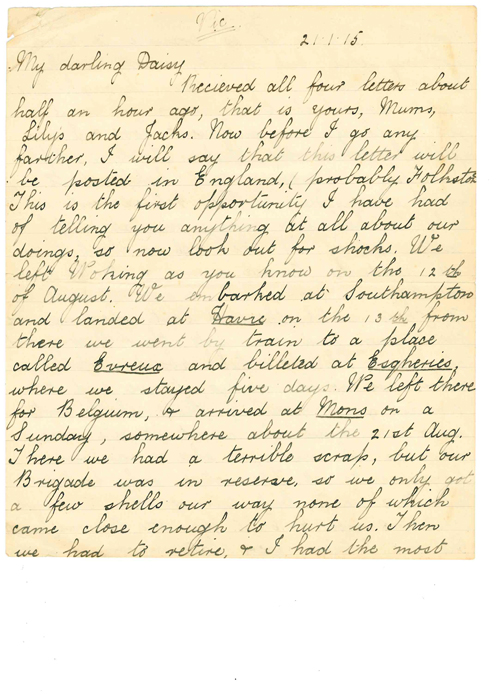 Vic.
21.1.15.
My darling Daisy
Recieved all four letters about
half an hour ago, that is yours, Mums,
Lilys and Jacks. Now before I go any
farther, I will say that this letter will
be posted in England, ( probably Folkstone
This is the first opportunity I have had
of telling you anything at all about our
doings, so now look out for shocks. We
left Woking as you know on the 12th
of August. We embarked at Southampton
and landed at Havre on the 13th from
there we went by train to a place
called Evreux and billeted at Esgheries,
where we stayed five days. We left there
for Belgium, & arrived at Mons on a
Sunday, somewhere about the 21st Aug.
There we had a terrible scrap, but our
Brigade was in reserve, so we only got
a few shells our way none of which
came close enough to hurt us. Then
we had to retire, & I had the most